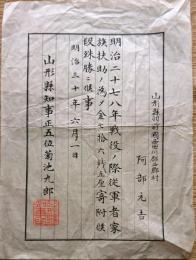 山形縣
阿部元吉
明治二十七八年戦役ノ際従軍者家
族扶助ノ為メ金拾六銭五厘寄附候
段殊勝ニ候事
明治三十年六月一日
山形縣知事正五位菊池九郎